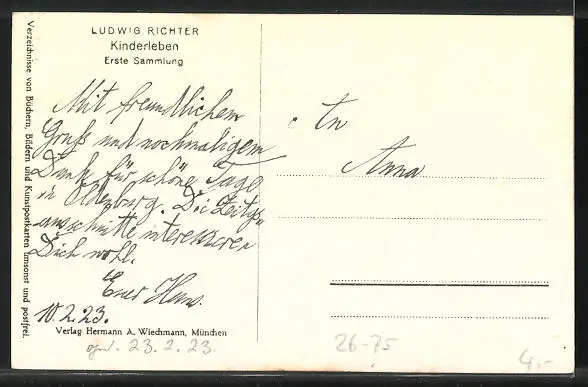 LUDWIG RICHTER
Kinderleben
Erste Sammlung
Mit freundlichem
Gruß und nochmaligem
Dank für schöne Tage
in Oldenburg. Die Zeitgs=
ausschnitte interessieren
Dich wohl.
Euer Hans.
10.2.23.
Verlag Hermann A. Wiechmann, München
23.2.23.
Verzeichnisse von Büchern, Bildern und Kunstpostkarten umsonst und postfrei.
An
Anna
26-75
4,-